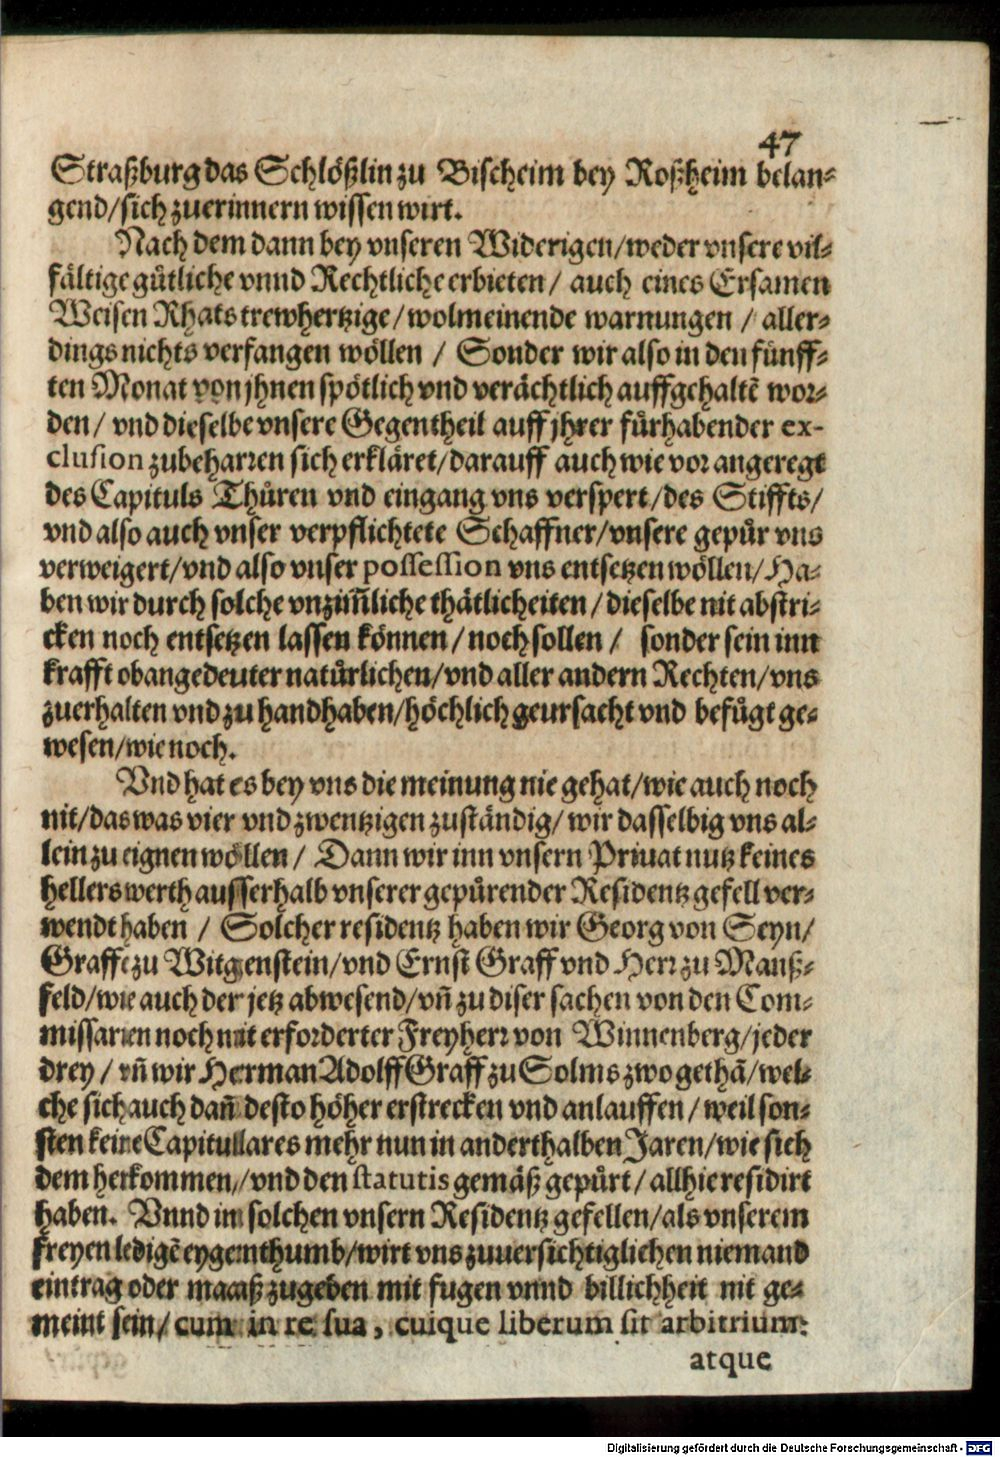 47
Straßburg das Schlößlin zu Bischeim bey Roßheim belan-
gend/sich zuerinnern wissen wirt.
Nach dem dann bey vnseren Widerigen/weder vnsere vil-
fältige gütliche vnnd Rechtliche erbieten/ auch eines Ersamen
Weisen Rhats trewhertzige/wolmeinende warnungen / aller-
dings nichts verfangen wöllen / Sonder wir also in den fünff-
ten Monat von jhnen spötlich vnd verächtlich auffgehaltē wor-
den/ vnd dieselbe vnsere Gegentheil auff jhrer fürhabender ex-
clusion zubeharren sich erkläret/darauff auch wie vor angeregt
des Capituls Thüren vnd eingang vns verspert/des Stiffts/
vnd also auch vnser verpflichtete Schaffner/vnsere gepür vns
verweigert/vnd also vnser possession vns entsetzen wöllen/Ha-
ben wir durch solche vnzim̃liche thätlicheiten/dieselbe nit abstri-
cken noch entsetzen lassen können/noch sollen/ sonder sein inn
krafft obangedeuter natürlichen/vnd aller andern Rechten/vns
zuerhalten vnd zu handhaben/höchlich geursacht vnd befügt ge-
wesen/wie noch.
Vnd hat es bey vns die meinung nie gehat/wie auch noch
nit/das was vier vnd zwentzigen zuständig/ wir dasselbig vns al-
lein zu eignen wöllen/ Dann wir inn vnsern Priuat nutz keines
hellers werth ausserhalb vnserer gepürender Residentz gefell ver-
wendt haben / Solcher residentz haben wir Georg von Seyn/
Graffe zu Witgenstein/vnd Ernst Graff vnd Herr zu Manß-
feld/wie auch der jetz abwesend/vñ zu diser sachen von den Com-
missarien noch nit erforderter Freyherr von Winnenberg/jeder
drey/ vñ wir Herman Adolff Graff zu Solms zwo gethā/wel-
che sich auch dañ desto höher erstrecken vnd anlauffen/weil son-
sten keine Capitullares mehr nun in anderthalben Jaren/wie sich
dem herkommen/vnd den statutis gemäß gepürt/allhie residirt
haben. Vnnd in solchen vnsern Residentz gefellen/als vnserem
freyen ledigē eygenthumb/wirt vns zuuersichtiglichen niemand
eintrag oder maaß zugeben mit fugen vnnd billichheit nit ge-
meint sein/cum in re sua, cuique liberum sit arbitrium:
atque
Digitalisierung gefördert durch die Deutsche Forschungsgemeinschaft - DFG